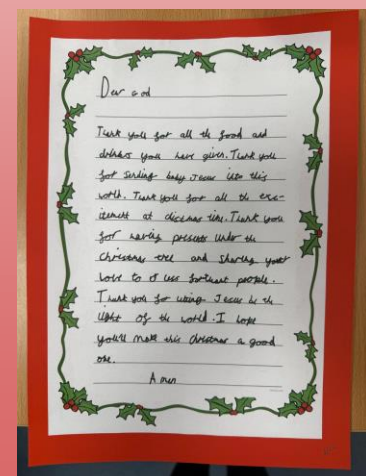 Dear God
Thank you for all the food and
drinks you have given. Thank you
for sending baby Jesus into this
world. Thank you for all the exc-
itement at dicemas time. Thank you
for having presents under the
christmas tree and sharing your
love to less fortuant people.
Thank you for using Jesus be the
light of the world. I hope
you'll make this christmas a good
one.
Amen